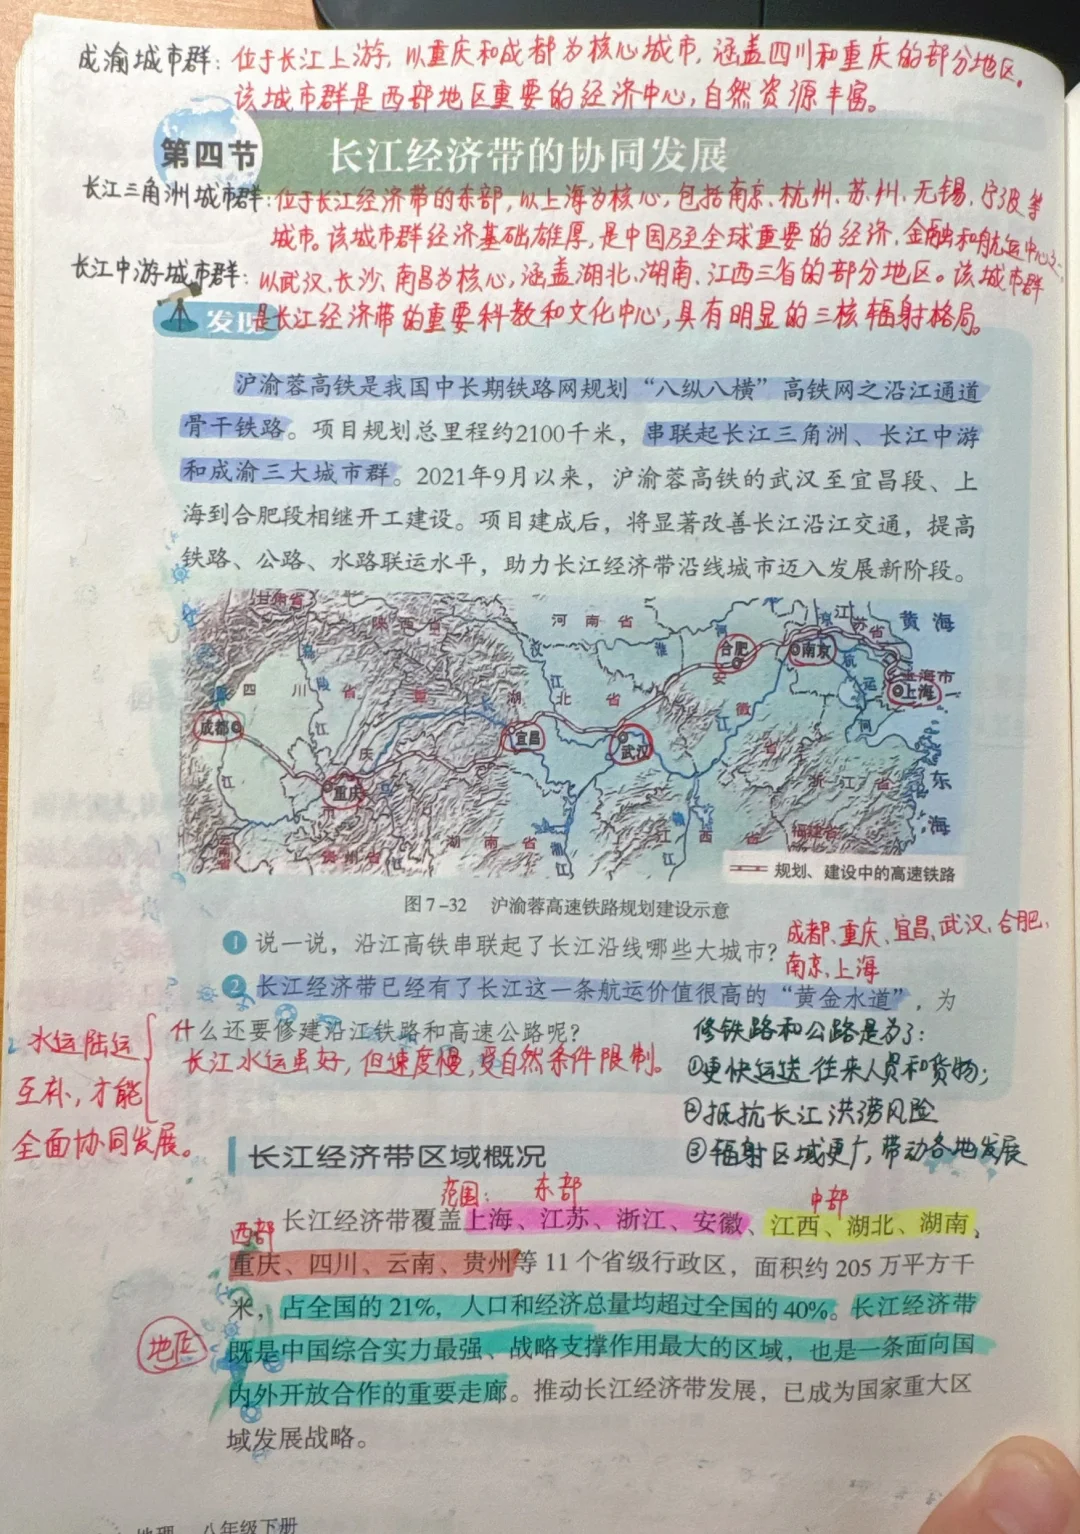 成渝城市群：位于长江上游，以重庆和成都为核心城市，涵盖四川和重庆的部分地区。
该城市群是西部地区重要的经济中心，自然资源丰富。
第四节 长江经济带的协同发展
长江三角洲城市群：位于长江经济带的东部，以上海为核心，包括南京、杭州、苏州、无锡、宁波等
城市。该城市群经济基础雄厚，是中国乃至全球重要的经济、金融和航运中心之一。
长江中游城市群：以武汉、长沙、南昌为核心，涵盖湖北、湖南、江西三省的部分地区。该城市群
发现
是长江经济带的重要科教和文化中心，具有明显的三核辐射格局。
沪渝蓉高铁是我国中长期铁路网规划“八纵八横”高铁网之沿江通道
骨干铁路。项目规划总里程约2100千米，串联起长江三角洲、长江中游
和成渝三大城市群。2021年9月以来，沪渝蓉高铁的武汉至宜昌段、上
海到合肥段相继开工建设。项目建成后，将显著改善长江沿江交通，提高
铁路、公路、水路联运水平，助力长江经济带沿线城市迈入发展新阶段。
甘肃省
陕西省
河南省
江苏省
黄海
四川省
嘉陵江
重庆市
汉江
湖北省
淮河
安徽省
京杭运河
上海市
成都
重庆
宜昌
武汉
合肥
南京
上海
长江
浙江省
东海
云南省
贵州省
湖南省
湘江
赣江
江西省
福建省
规划、建设中的高速铁路
图7-32 沪渝蓉高速铁路规划建设示意
1 说一说，沿江高铁串联起了长江沿线哪些大城市？
成都、重庆、宜昌、武汉、合肥、
南京、上海
2 长江经济带已经有了长江这一条航运价值很高的“黄金水道”，为
什么还要修建沿江铁路和高速公路呢？
长江水运虽好，但速度慢，受自然条件限制。
水运陆运
互补，才能
全面协同发展。
修铁路和公路是为了：
①更快运送往来人员和货物；
②抵抗长江洪涝风险
③辐射区域更广，带动各地发展
长江经济带区域概况
范围： 东部 中部
西部
长江经济带覆盖上海、江苏、浙江、安徽、江西、湖北、湖南、
重庆、四川、云南、贵州等11个省级行政区，面积约205万平方千
米，占全国的21%，人口和经济总量均超过全国的40%。长江经济带
地区
既是中国综合实力最强、战略支撑作用最大的区域，也是一条面向国
内外开放合作的重要走廊。推动长江经济带发展，已成为国家重大区
域发展战略。
地理 八年级下册